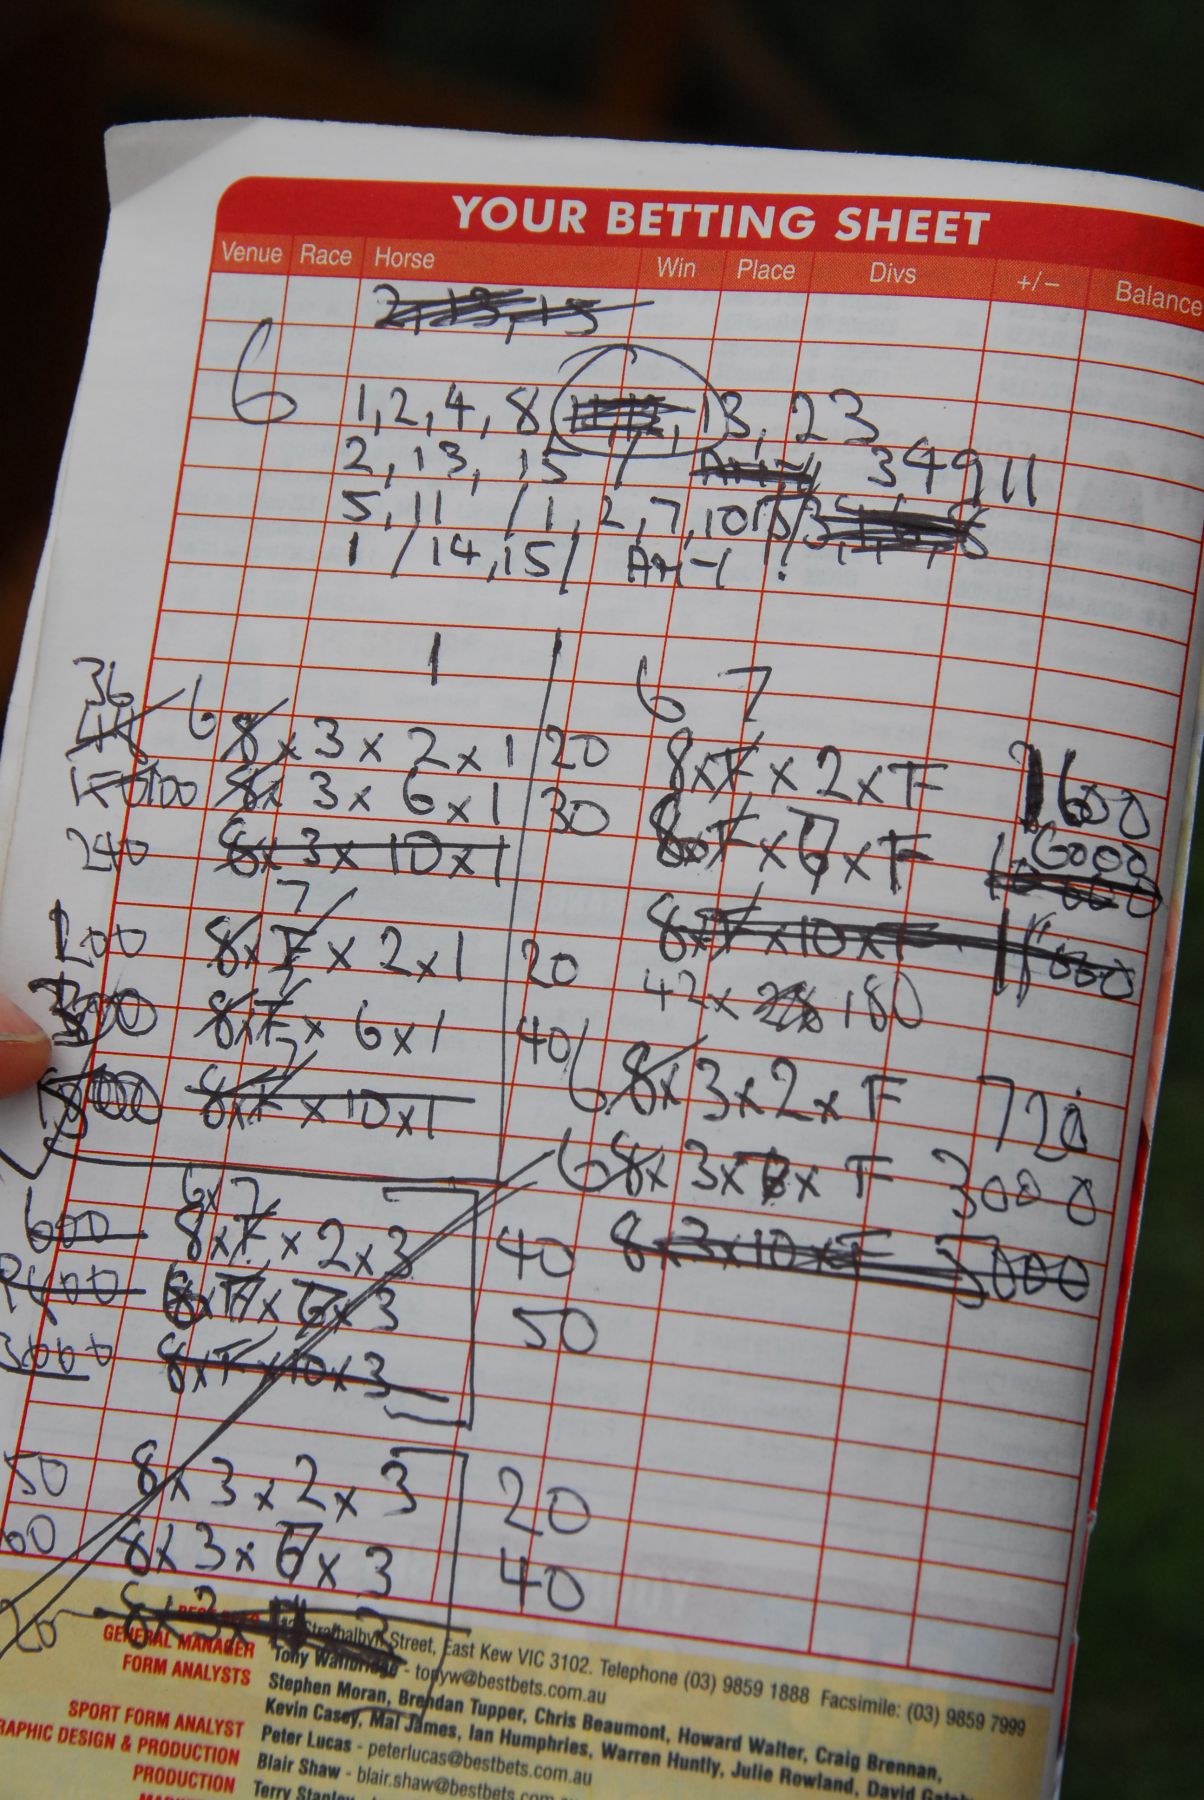 YOUR BETTING SHEET
Venue Race Horse Win Place Divs +/- Balance
2, 13, 15
6 1, 2, 4, 8 13, 23
2, 13, 15 / 34911
5, 11 / 1, 2, 7, 10
1 / 14, 15 /
1 6 7
36
6 8 x 3 x 2 x 1 20 8 x F x 2 x F 1600
100 8 x 3 x 6 x 1 30 8 x F x 6 x F 6000
240 8 x 3 x 10 x 1 10000
7
200 8 x F x 2 x 1 20 8 x F x 10 x F
7
8 x F x 6 x 1 40 42 x 180
7
8 x F x 10 x 1 6 8 x 3 x 2 x F 720
6 8 x 3 x 6 x F 3000
6 x 7
600 8 x F x 2 x 3 40 8 x 3 x 10 x F 5000
8 x F x 6 x 3 50
3000 8 x F x 10 x 3
50 8 x 3 x 2 x 3 20
60 8 x 3 x 6 x 3 40
20 8 x 3 x 3
Strathalbyn Street, East Kew VIC 3102. Telephone (03) 9859 1888 Facsimile: (03) 9859 7999
GENERAL MANAGER Tony - tonyw@bestbets.com.au
FORM ANALYSTS Stephen Moran, Brendan Tupper, Chris Beaumont, Howard Walter, Craig Brennan,
Kevin Casey, Mal James, Ian Humphries, Warren Huntly, Julie Rowland, David
SPORT FORM ANALYST Peter Lucas - peterlucas@bestbets.com.au
RAPHIC DESIGN & PRODUCTION Blair Shaw - blair.shaw@bestbets.com
PRODUCTION Terry